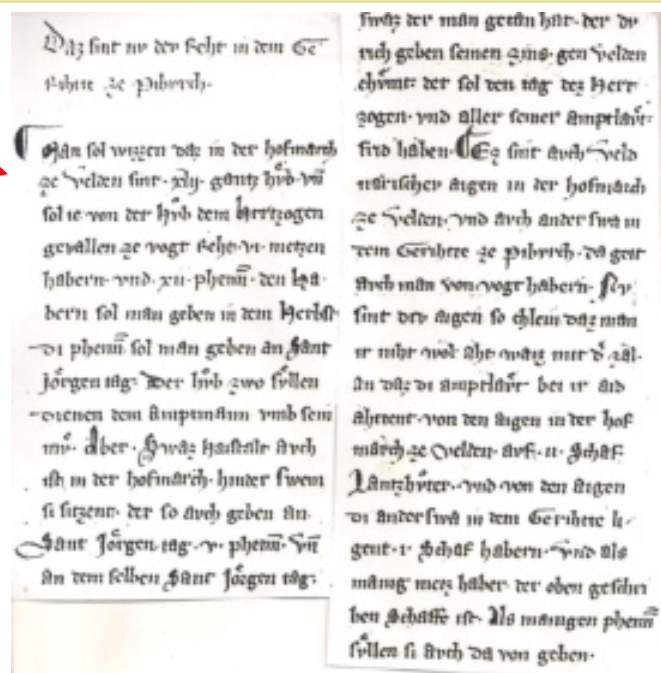 Daz sint nv dev Reht in dem Ge
Rihtte ze Pibvrch.
Man sol wizzen daz in der hofmarch
ze Velden sint. xlij. gantz hvb. vnd
sol ie von der hvb dem Hertzogen
gevallen ze vogt Reht. vi. metzen
habern. vnd. xii. phenn. den ha
bern sol man geben in dem Herbst
di phenn sol man geben an Sant
Jörgen tag. Der hvb zwo svllen
dienen dem Amptmann vmb sein
mv. Aber. Swaz Hofstate Avch
ist in der hofmarch. hinder swem
si sitzent. der so avch geben an
Sant Jörgen tag. v. phenn. Vn
An dem selben Sant Jörgen tag.
swaz der man getan hat. der
geben seinen zins. gen Velden
chvmt. der sol den tag dez Herr
zogen. vnd aller seiner Amptlävt
frid haben. Ez sint avch Veld
närischev aigen in der hofmarch
ze Velden. vnd avch ander swa in
dem Gerihtte ze Pibvrch. da geit
Avch man von vogt habern. Nv
sint dev aigen so chlein daz man
ir niht wol aht waiz mit d. zal.
An daz di amptlävt bei ir aid
ahttent. von den aigen in der hof
march ze Velden. avf. ii. Schaf
Lantzhvter. vnd von den aigen
di ander swa in dem Gerihtte li
gent. i. Schaf habern. Vnd als
manig metz haber der oben geschri
ben Schaffe ist. Als manigen phenn
svllen si Avch da von geben.